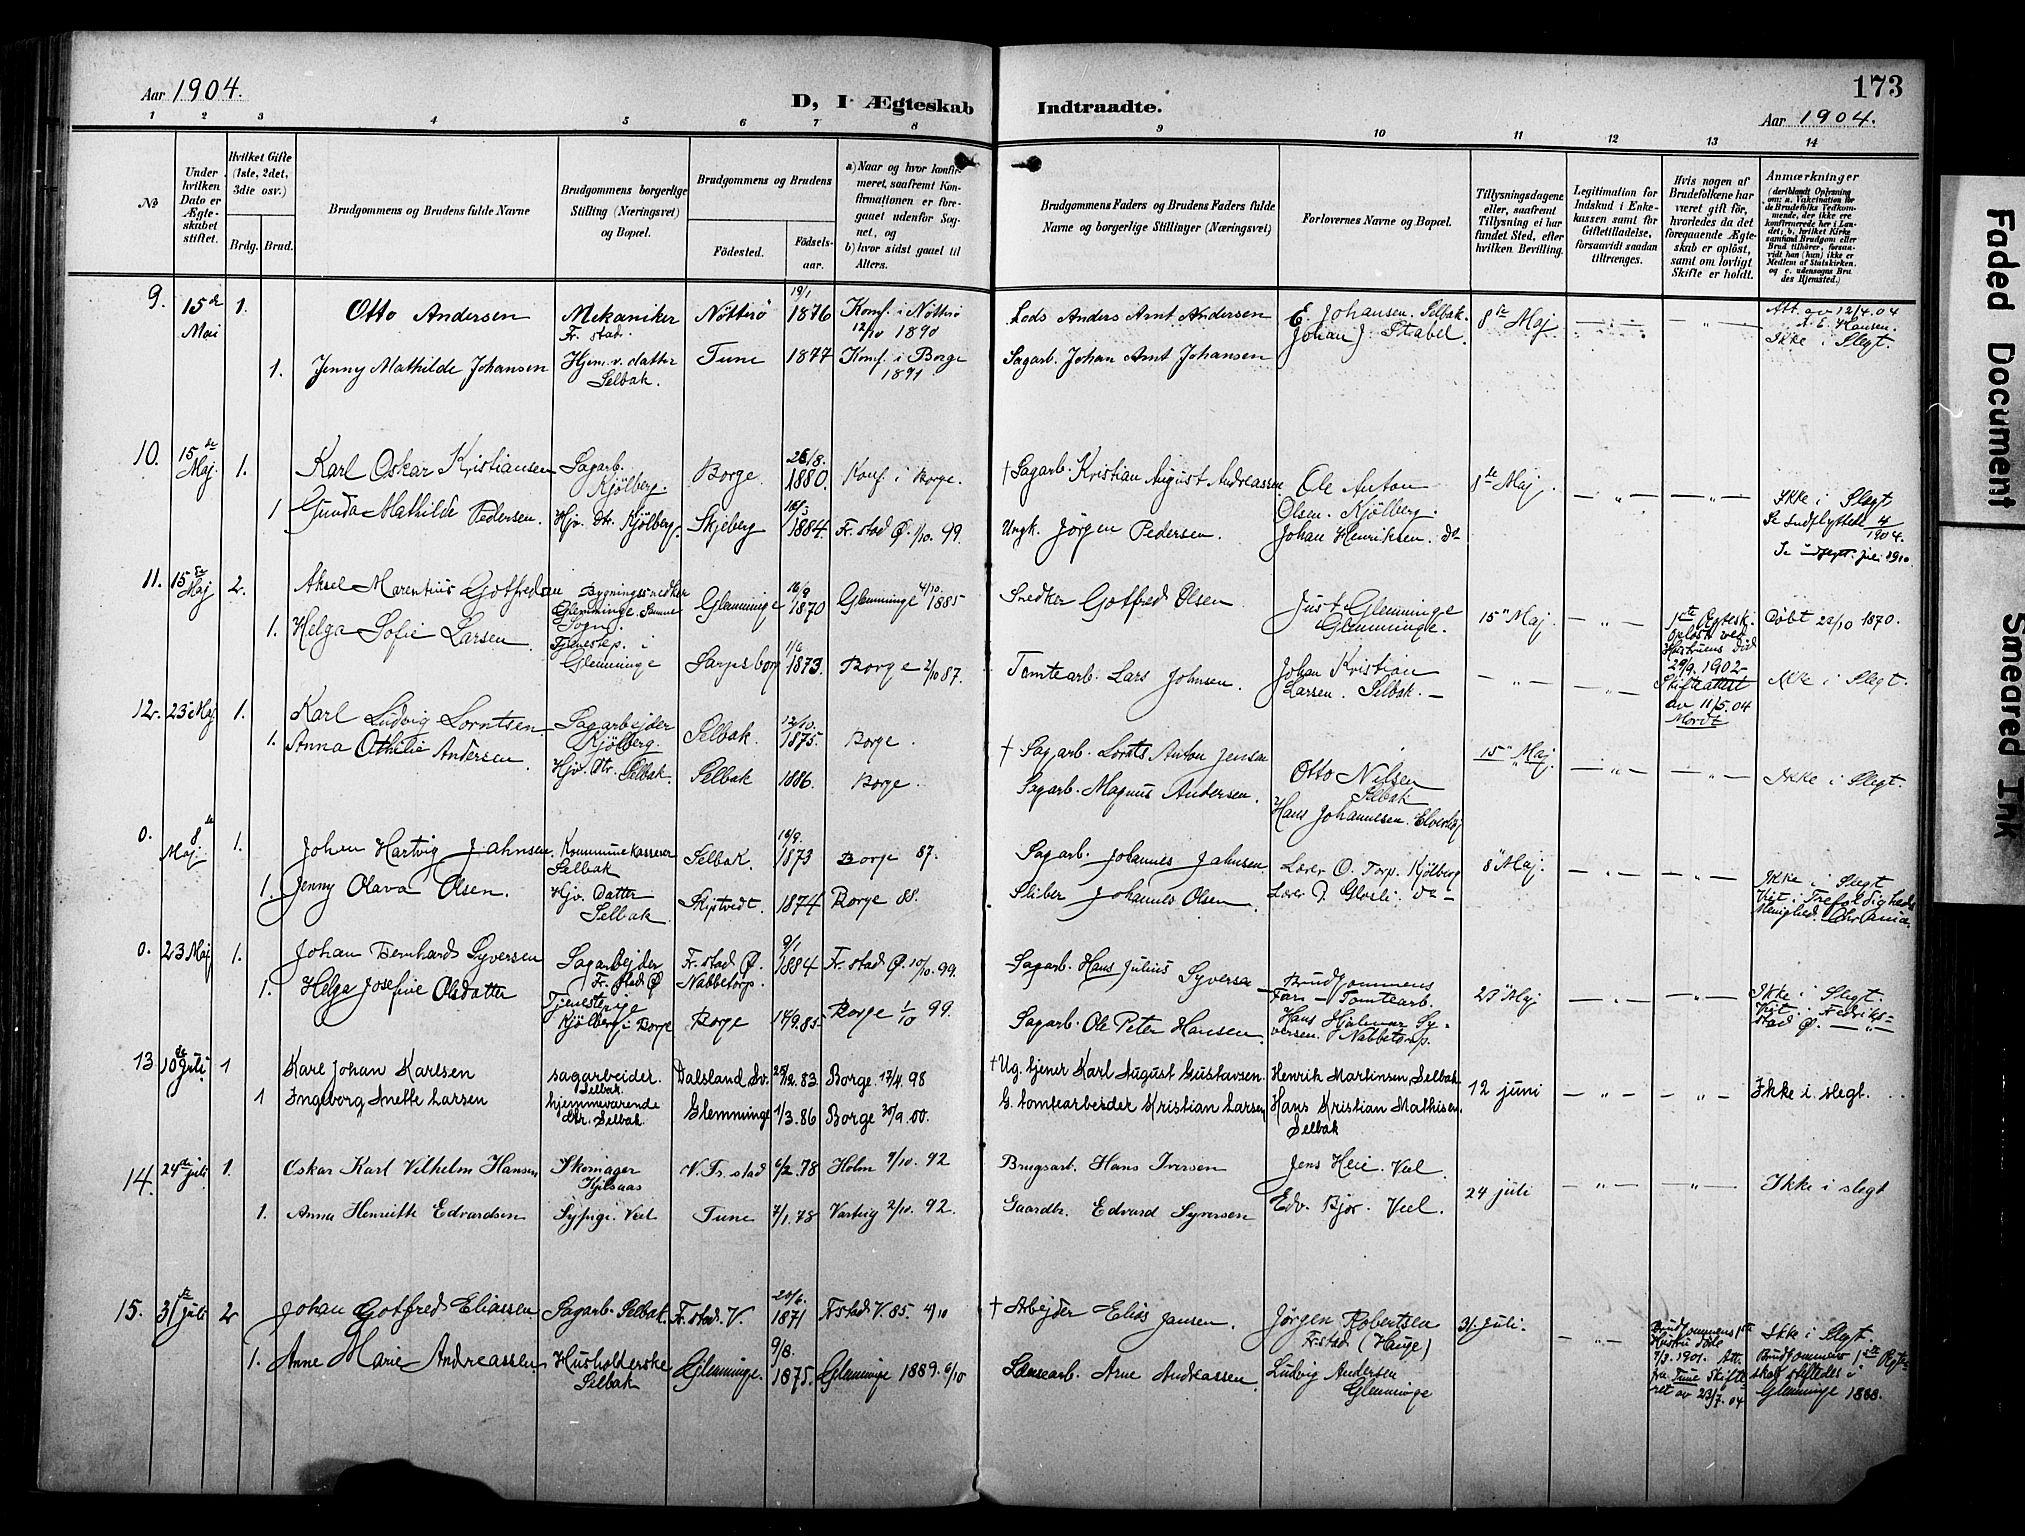 Aar 1904.
D, I Ægteskab Indtraadte.
173
Aar 1904.
1 2 3 4 5 6 7 8 9 10 11 12 13 14
No
Under hvilken Dato er Ægteskabet stiftet.
Hvilket Gifte (1ste, 2det, 3die osv.)
Brdg. Brud.
Brudgommens og Brudens fulde Navne
Brudgommens borgerlige Stilling (Næringsvei) og Bopæl.
Brudgommens og Brudens
Fødested. Fødselsaar.
a) Naar og hvor konfirmeret, saafremt Konfirmationen er foregaaet udenfor Sognet, og
b) hvor sidst gaaet til Alters.
Brudgommens Faders og Brudens Faders fulde Navne og borgerlige Stillinger (Næringsvei)
Forlovernes Navne og Bopæl.
Tillysningsdagene eller, saafremt Tillysning ei har fundet Sted, efter hvilken Bevilling.
Legitimation for Indskud i Enkekassen samt for Giftetilladelse, forsaavidt saadan tiltrænges.
Hvis nogen af Brudefolkene har været gift før, hvorledes da det foregaaende Ægteskab er opløst, samt om lovligt Skifte er holdt.
Anmærkninger
9. 15de Mai 1. Otto Andersen Mekaniker Fr. stad. Nötterö 19/1 1876 Konf. i Nötterö 12/10 1890 Lods Anders Arnt Andersen E. Johansen. Selbak. Johan J. Stabel. 8de Maj. — " — — " — Att. av 12/4.04 Hansen. Ikke i Slegt.
1. Jenny Mathilde Johansen Hjem. v. datter Selbak. Tune 1877 Konf. i Borge 1891. Sagarb. Johan Arnt Johansen
10. 15de Maj. 1. Karl Oskar Kristiansen Sagarb. Kjölberg. Borge. 26/8. 1880. Konf. i Borge. † Sagarb. Kristian August Andreassen Ole Anton Olsen. Kjölberg. 8de Maj. — " — — " — Ikke i Slegt
1 Gunda Mathilde Pedersen. Hjv. Dtr. Kjölberg. Skjeberg 1884. Fr. stad Ø. 1/10. 99. Ungk. Jörgen Pedersen. Johan Henriksen. do Se Indflyttede 4/1904.
11. 15de Maj 2. Aksel Marentius Gotfredsen Bygningssnedker Glemminge Samme Sogn. Glemminge 16/9 1870 Glemminge 4/10 1885 Snedker Gotfred Olsen Just Glemminge Glemminge. 15" Maj. — " — 1ste Ægtesk. opløst ved Hustruens Død 29/9. 1902- Døbt 23/10 1870.
1. Helga Sofie Larsen. Tjenestep. i Glemminge Sarpsborg 1/6 1873. Borge 2/10 87. Tomtearb. Lars Johnsen. Johan Kristian Larsen. Selbak. — — " — — " — Skifteattest av 11/5.04 Ikke i Slegt.
12. 23de Maj 1. Karl Ludvig Lorntsen Sagarbejder Kjölberg. Selbak. 12/10. 1875. Borge. † Sagarb. Lornts Anton Jensen Otto Nilsen Selbak 15" Maj. — " — — " — Ikke i Slegt.
1. Anna Othilie Andersen. Hjv. Dtr. Selbak. Selbak 1886. Borge. Sagarb. Magnus Andersen. Hans Johannesen. Elverhöj
0. 8de Maj 1. Johan Hartvig Jahnsen. Kommunekasserer Selbak Selbak. 16/9. 1873 Borge 87. Sagarb. Johannes Jahnsen Lærer O. Torp. Kjölberg 8" Maj. — " — — " — Ikke i Slegt
1. Jenny Olava Olsen. Hjv. Datter Selbak. Skiptvedt. 1874 Borge 88. Sliber Johannes Olsen. Lærer Glosli. do — Viet i Trefoldigheds Menighed.
0. 23 Maj 1. Johan Bernhard Syversen Sagarbejder Fr. Stad Ø Fr. stad Ø. Nabbetorp. 9/1 1884 Fr. stad Ø. 10/10. 99. Sagarb. Hans Julius Syversen Brudgommens Far — Tomtearb. Hans Hjalmar Syversen. Nabbetorp. 23" Maj — " — — " — Ikke i Slegt. Viet i Fredrikstad Ø. — " —
1. Helga Josefine Olsdatter Tjenestepige Kjölberg i Borge Borge 14/9. 85. Borge 1/10 99. Sagarb. Ole Peter Hansen.
13 10de Juli 1 Karl Johan Karlsen sagarbeider. Selbak. Dalsland Sv. 25/12. 83. Borge. 17/4. 98 † Ug. tjener Karl August Gustavsen. Henrik Martinsen, Selbak 12 juni — " — — " — Ikke i slegt.
1 Ingeborg Anette Larsen hjemmeværende dtr. Selbak. Glemminge 1/3. 86 Borge 30/9. 00. G. tomtearbeider Kristian Larsen Hans Kristian Mathisen. Selbak
14. 24de juli 1. Oskar Karl Vilhelm Hansen Skomager Kjilsaas V. Fr. stad 6/2. 78 Holm 9/10. 92 Brugsarb. Hans Iversen Jens Heie. Veel. 24 juli — " — — " — Ikke i slegt
1. Anna Henriette Edvardsen Sypige. Veel Tune 7/1. 78 Varteig 2/10. 92. Gaardbr. Edvard Syversen Edv. Bjor. Veel.
15. 31te Juli 2 Johan Gotfred Eliassen Sagarb. Selbak. Fr. stad. V. 20/6. 1871 Frstad V. 85. 4/10 † Arbejder Elias Jansen. Jörgen Robertsen Frstad (Hauge) 31. juli. — " — Brudgommens 1ste Hustru døde 7/3. 1901. Att. fra Tune Skifteret av 23/7. 04 Ikke i Slegt. Brudgommens 1ste Ægteskab stiftedes i Glemminge 1888.
1. Anne Marie Andreassen Husholderske Selbak Glemminge. 9/8. 1875. Glemminge 1889. 6/10 Lænsearb. Arne Andreassen. Ludvig Andersen Glemminge
Faded Document
Smeared Ink